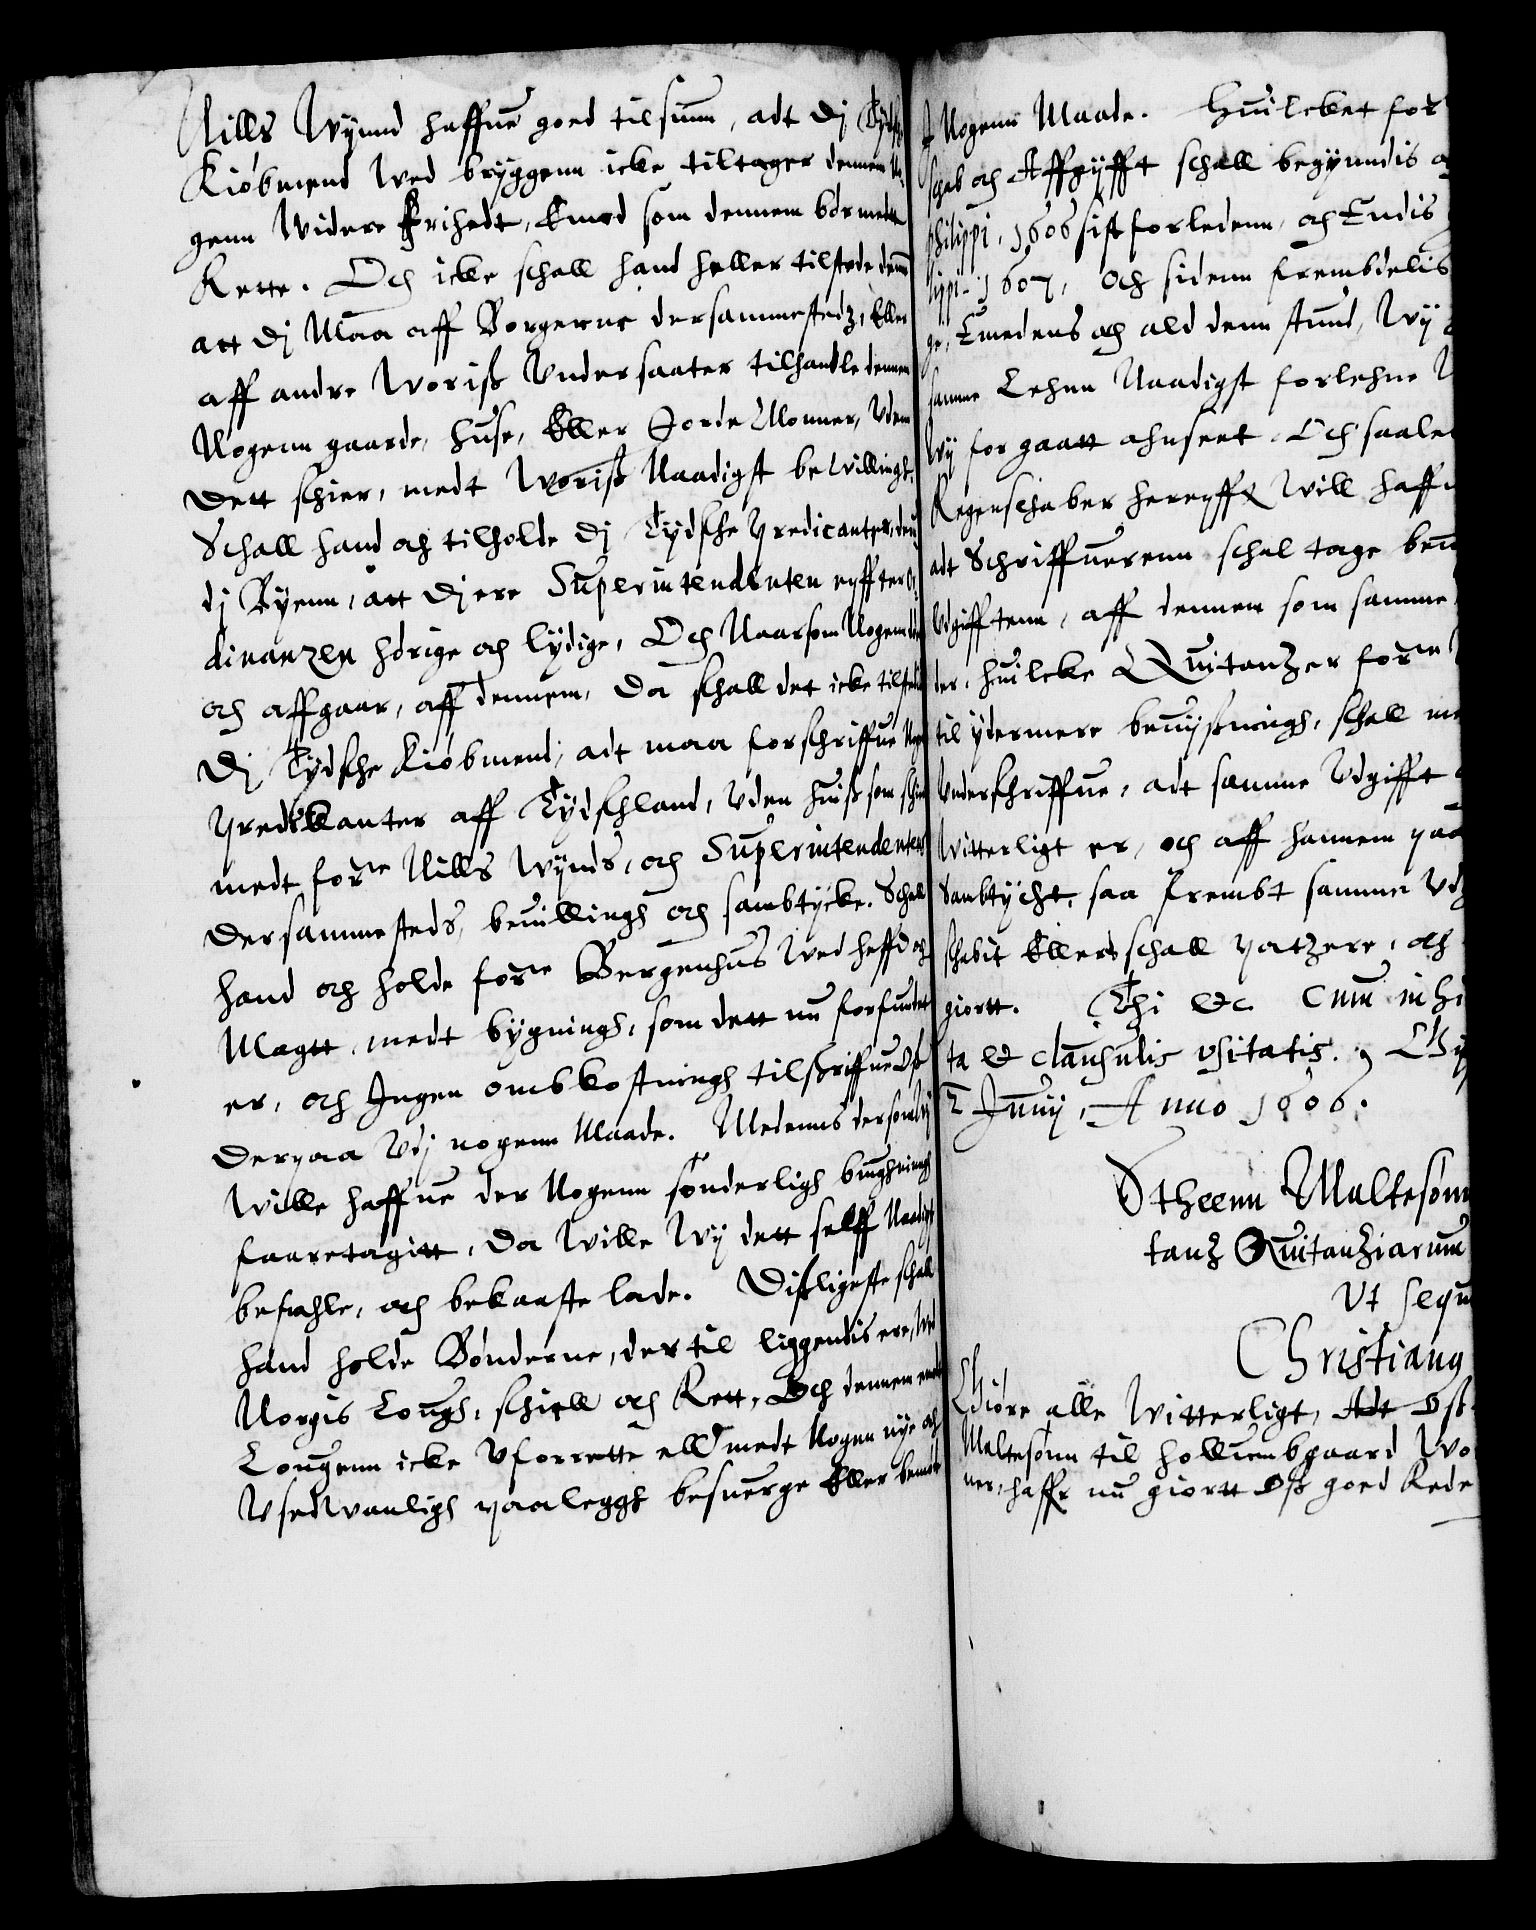 Nills Wynnd haffue goed tilsiunn, adt dj Tydsche
Kiöbmend wed bryggenn icke tiltager dennem No-
genn widere Frihedt, Emod som dennem bör medt
Rette. Och icke schall hand heller tilstede dennem
att dj Maa aff Borgerne dersammestedz, Eller
aff andre Woriss Vndersaater tilhandle dennem
Nogenn gaarde, huse, Eller Jorde Monner, Vden
dett schier, medt Woriss Naadigst bewillingh.
Schall hand och tilholde dj Tydsche predicanter, der
dj Byenn, att dj ere Superintendenten epffter Or-
dinanzen hörige och lydige, Och Naarsom Nogen dör
och affgaar, aff dennem, da schall det icke tilstedis
dj Tydsche Kiöbmend, adt maa forschriffue Nogen
predikanter aff Tydschland, Vden huiss som schier
medt forne Nills Wynds, och Superintendentens
dersammesteds, beuillingh och sambtycke. Schall
hand och holde forne Bergenhus wed heffd och
Magtt medt bygningh, som dett nu forfundet
er, och Ingen ombkostningh tilschriffue Oss
derpaa Vdj nogenn Maade. Medenns dersom Wy
Wille haffue der Nogenn sönderligh bygningh
faaretagitt, da Wille Wy dett selff Naadigst
befahle, och bekaaste lade. Disligeste schall
hand holde Bönderne, der til liggendis ere, Wed
Norgis Lough, schiell och Rett, Och dennem emod
Lougenn icke Vforrette eller medt Nogen nye och
Vsedwanligh paalegge besuerge Eller bemöde
I Nogenn Maade. Huilcket for
schab och Affgifft schall begyndis
Philippi, 1606 sist forledenn, och Endis
lippi 1607, Och sidenn frembdelis
ge, Emedens och ald denn stund, Wy
samme Lehnn Naadigst forlehne
Wy for gaatt ahnseet. Och saale
Regenschaber herepffter Will haffu
adt Schriffuerenn schal tage beui
Vdgifftenn, aff dennem som samme
der, huilcke Quitanzer forne
til ydermere beuysningh, schall me
Vnderschriffue, adt samme Vdgifft
Witterligt er, och aff hannem paa
Samtycht, saa frembt samme Vdg
schabit Ellers schall patzere, och
giortt. Thi &c Cum inhi
ta & clausulis vsitatis. Exp
2 Junij, Anno 1606.
Stheenn Maltesönn
tanz Quitanziarum
Vt sequ
Christianus
Giöre alle Witterligt, Adt Oss
Maltesönn til holluembgaard Wo
ner, haffr nu giortt Oss goed Rede